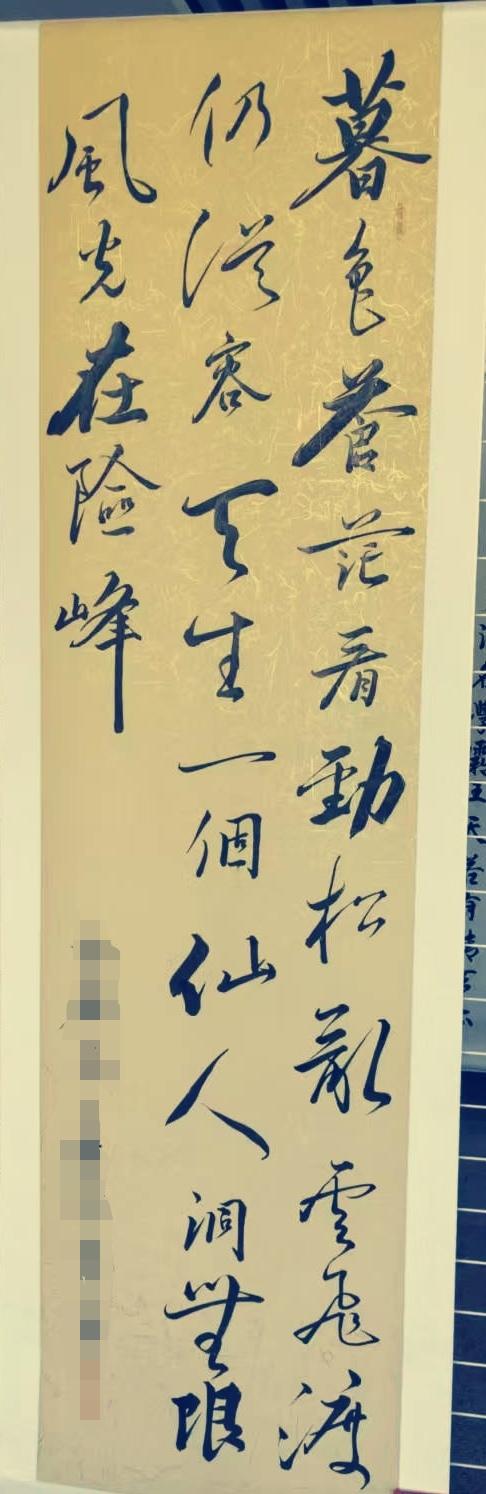 暮色蒼茫看勁松亂雲飛渡
仍從容天生一個仙人洞無限
風光在險峰